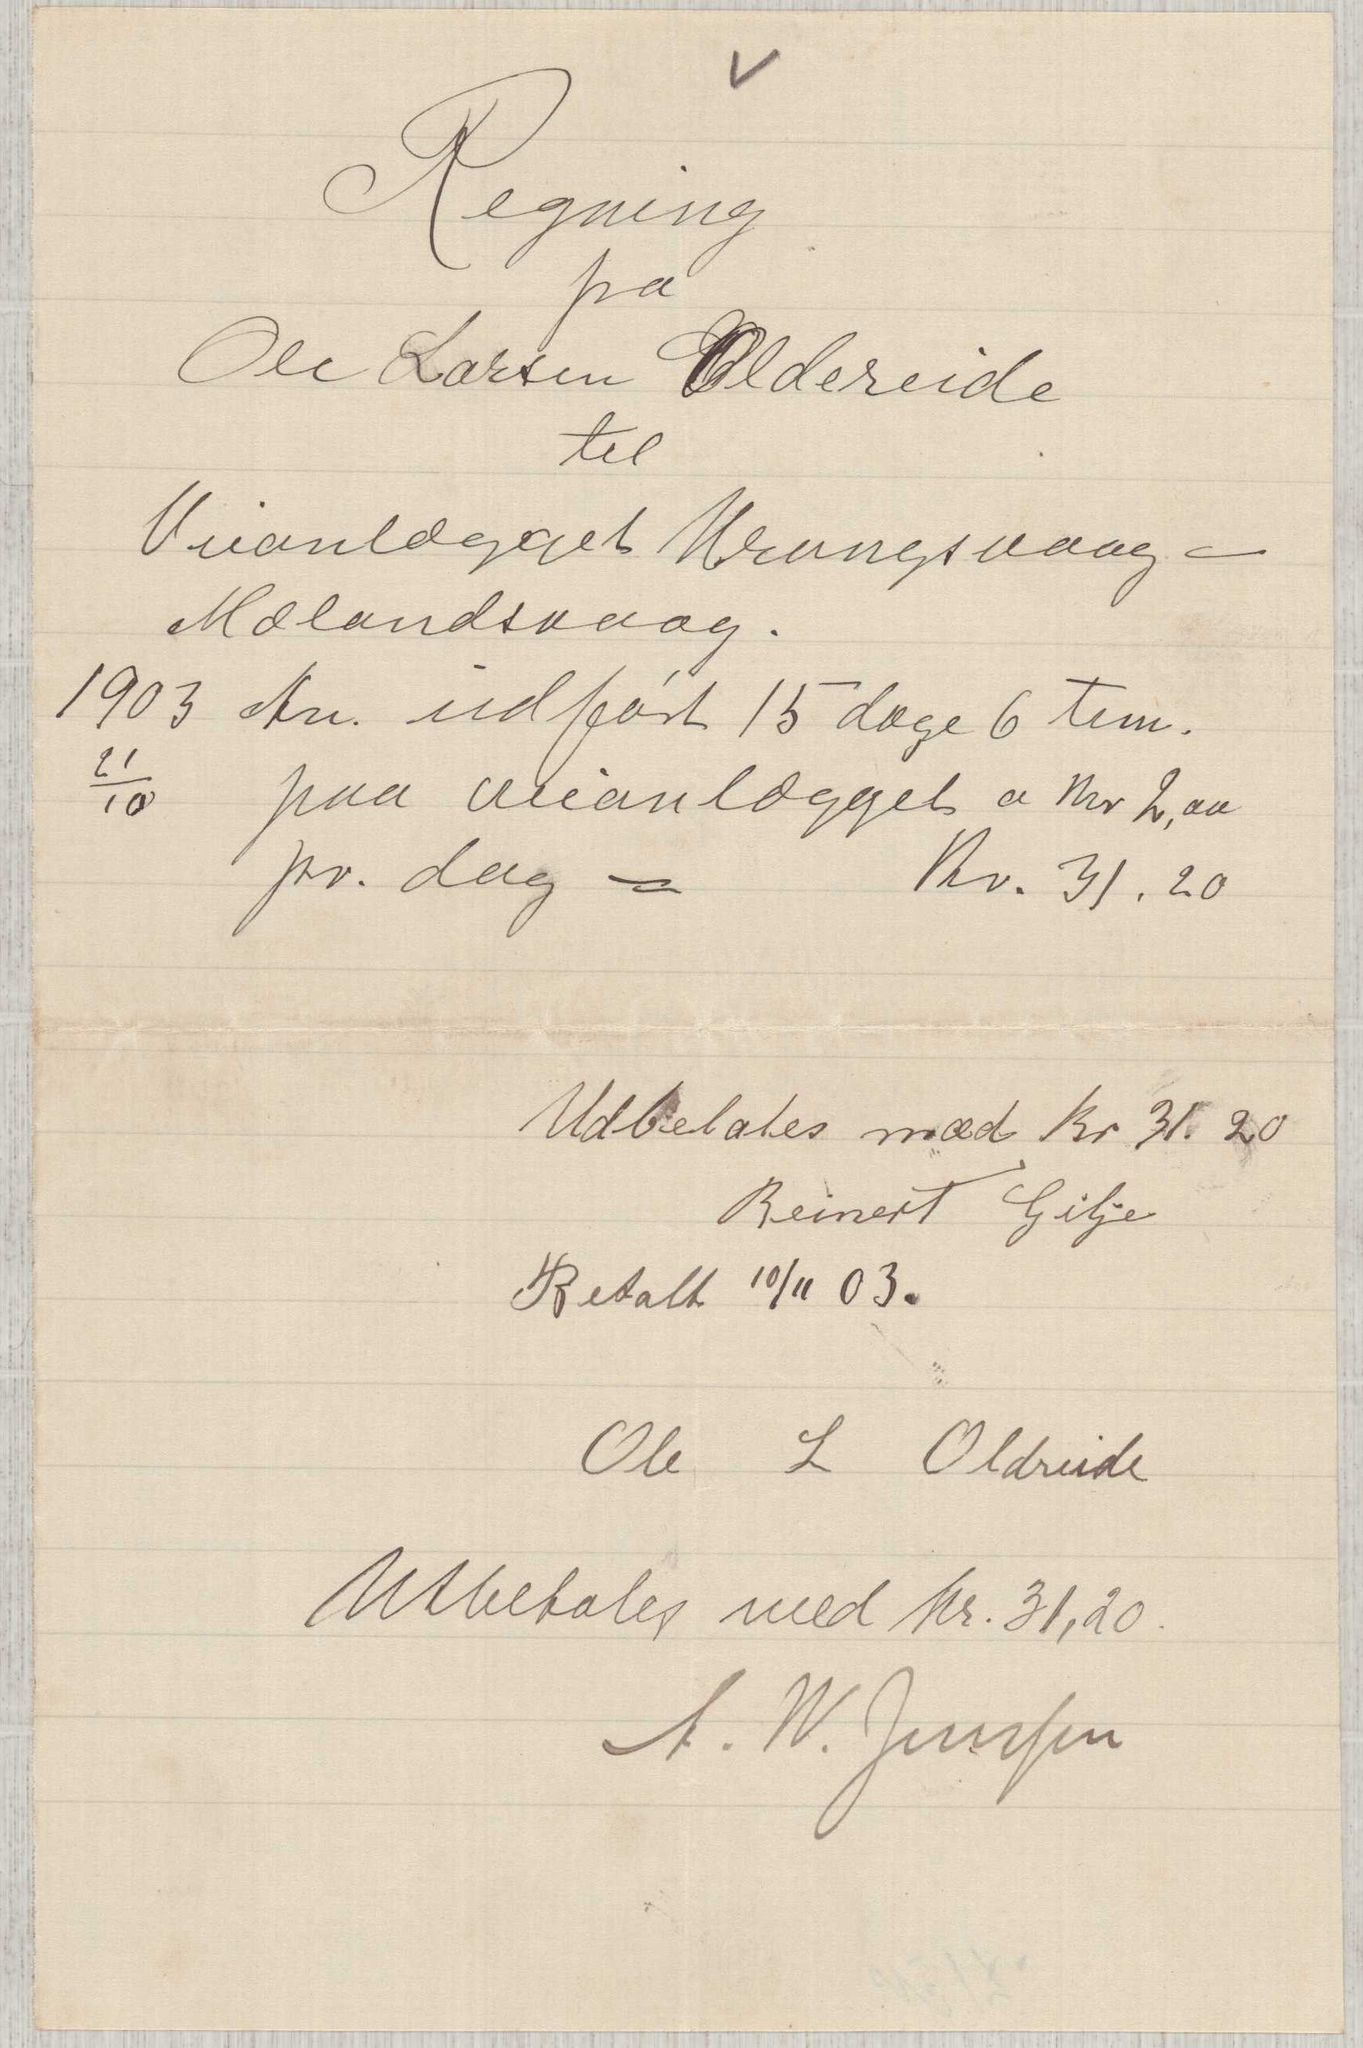 Regning
fra
Ole Larsen Oldereide
til
Veianlægget Urangsvaag -
Mælandsvaag.
1903 Arn. udført 15 dage 6 tim.
21/10 paa veianlægget a Kr 2,00
pr. dag = Kr. 31.20
Udbetales med Kr 31.20
Reinert Gilje
Betalt 10/11 03.
Ole L Oldreide
Utbetales med Kr. 31,20.
A. W. Jenssen